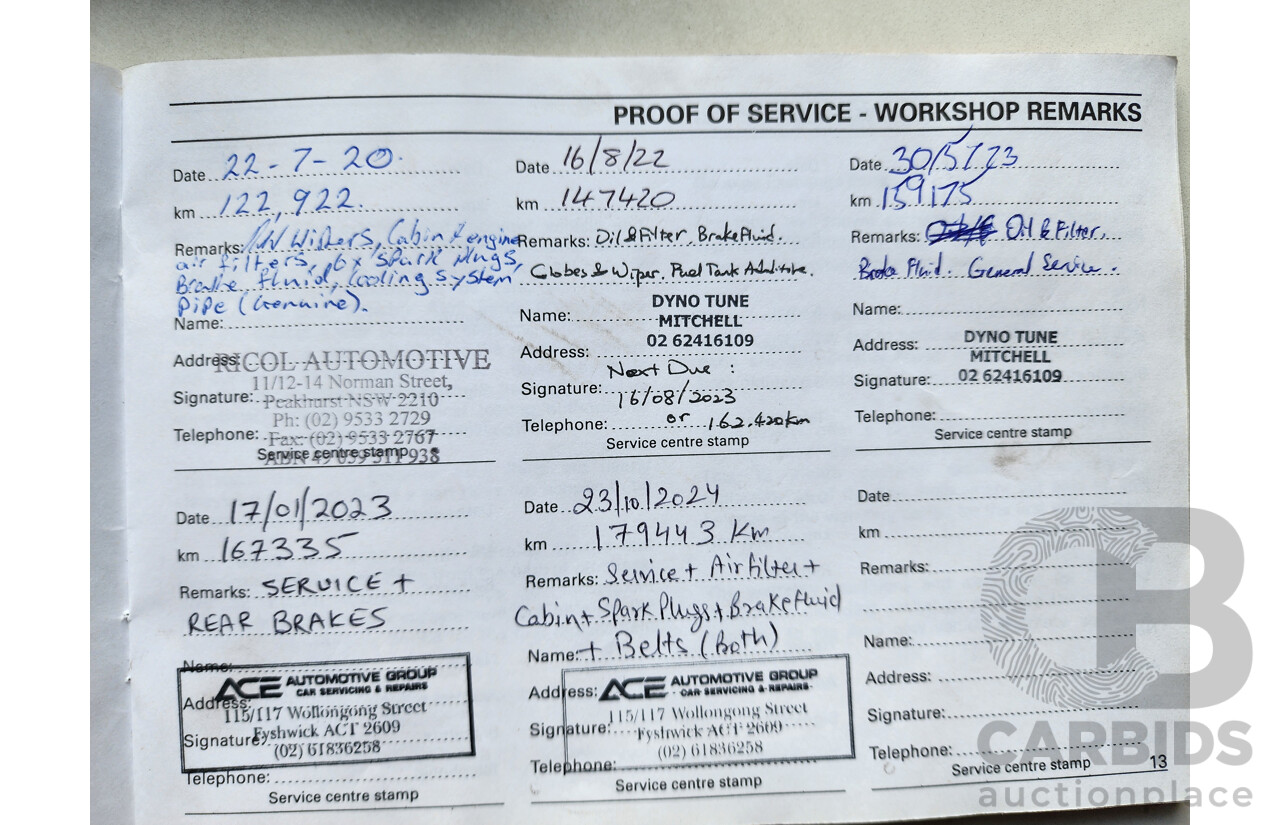 PROOF OF SERVICE - WORKSHOP REMARKS
Date 22-7-20.
km 122,922.
Remarks: Wipers, Cabin & engine
air filters, 6x spark plugs,
Brake fluid, Cooling system
pipe (Genuine).
Name:
Address:
RICOL AUTOMOTIVE
11/12-14 Norman Street,
Signature:
Peakhurst NSW 2210
Ph: (02) 9533 2729
Telephone:
Fax: (02) 9533 2767
Service centre stamp
ABN 49 059 511 938
Date 16/8/22
km 147420
Remarks: Oil & Filter, Brake Fluid.
Globes & Wiper. Fuel Tank Additive.
DYNO TUNE
Name:
MITCHELL
02 62416109
Address:
Next Due :
Signature:
16/08/2023
Telephone: or 162,420km
Service centre stamp
Date 30/5/23
km 159175
Remarks: Oil & Filter,
Brake Fluid. General Service.
Name:
DYNO TUNE
Address:
MITCHELL
Signature: 02 62416109
Telephone:
Service centre stamp
Date 17/01/2023
km 167335
Remarks: SERVICE +
REAR BRAKES
Name:
ACE AUTOMOTIVE GROUP
CAR SERVICING & REPAIRS
Address:
115/117 Wollongong Street
Fyshwick ACT 2609
Signature:
(02) 61836258
Telephone:
Service centre stamp
Date 23/10/2024
km 179443 Km
Remarks: Service + Air filter +
Cabin + Spark Plugs + Brake fluid
Name: + Belts (Both)
ACE AUTOMOTIVE GROUP
Address: CAR SERVICING & REPAIRS
115/117 Wollongong Street
Signature: Fyshwick ACT 2609
(02) 61836258
Telephone:
Service centre stamp
Date
km
Remarks:
Name:
Address:
Signature:
Telephone:
Service centre stamp
13
CARBIDS
auctionplace